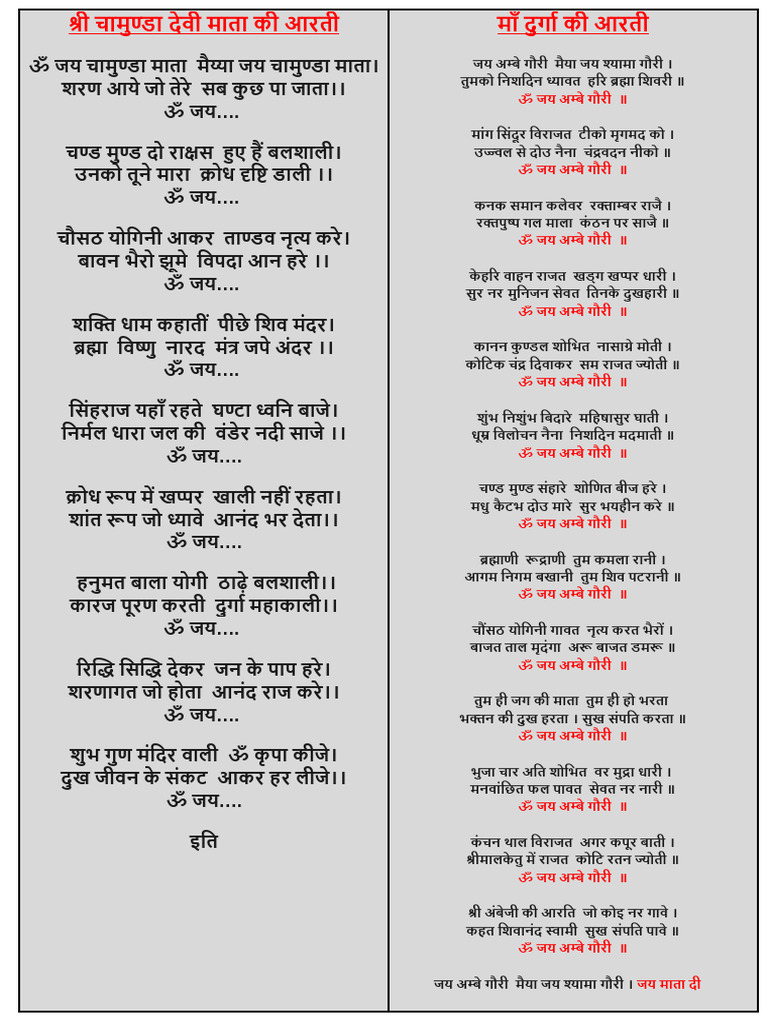 श्री चामुण्डा देवी माता की आरती
ॐ जय चामुण्डा माता  मैय्या जय चामुण्डा माता।
शरण आये जो तेरे  सब कुछ पा जाता।।
ॐ जय....
चण्ड मुण्ड दो राक्षस  हुए हैं बलशाली।
उनको तूने मारा  क्रोध दृष्टि डाली ।।
ॐ जय....
चौसठ योगिनी आकर  ताण्डव नृत्य करे।
बावन भैरो झूमे  विपदा आन हरे ।।
ॐ जय....
शक्ति धाम कहातीं  पीछे शिव मंदर।
ब्रह्मा  विष्णु  नारद  मंत्र जपे अंदर ।।
ॐ जय....
सिंहराज यहाँ रहते  घण्टा ध्वनि बाजे।
निर्मल धारा जल की  वंडेर नदी साजे ।।
ॐ जय....
क्रोध रूप में खप्पर  खाली नहीं रहता।
शांत रूप जो ध्यावे  आनंद भर देता।।
ॐ जय....
हनुमत बाला योगी  ठाढ़े बलशाली।।
कारज पूरण करती  दुर्गा महाकाली।।
ॐ जय....
रिद्धि सिद्धि देकर  जन के पाप हरे।
शरणागत जो होता  आनंद राज करे।।
ॐ जय....
शुभ गुण मंदिर वाली  ॐ कृपा कीजे।
दुख जीवन के संकट  आकर हर लीजे।।
ॐ जय....
इति
माँ दुर्गा की आरती
जय अम्बे गौरी  मैया जय श्यामा गौरी ।
तुमको निशदिन ध्यावत  हरि ब्रह्मा शिवरी ॥
ॐ जय अम्बे गौरी  ॥
मांग सिंदूर विराजत  टीको मृगमद को ।
उज्ज्वल से दोउ नैना  चंद्रवदन नीको ॥
ॐ जय अम्बे गौरी  ॥
कनक समान कलेवर  रक्ताम्बर राजै ।
रक्तपुष्प गल माला  कंठन पर साजै ॥
ॐ जय अम्बे गौरी  ॥
केहरि वाहन राजत  खड्ग खप्पर धारी ।
सुर नर मुनिजन सेवत  तिनके दुखहारी ॥
ॐ जय अम्बे गौरी  ॥
कानन कुण्डल शोभित  नासाग्रे मोती ।
कोटिक चंद्र दिवाकर  सम राजत ज्योती ॥
ॐ जय अम्बे गौरी  ॥
शुंभ निशुंभ बिदारे  महिषासुर घाती ।
धूम्र विलोचन नैना  निशदिन मदमाती ॥
ॐ जय अम्बे गौरी  ॥
चण्ड मुण्ड संहारे  शोणित बीज हरे ।
मधु कैटभ दोउ मारे  सुर भयहीन करे ॥
ॐ जय अम्बे गौरी  ॥
ब्रह्माणी  रूद्राणी  तुम कमला रानी ।
आगम निगम बखानी  तुम शिव पटरानी ॥
ॐ जय अम्बे गौरी  ॥
चौंसठ योगिनी गावत  नृत्य करत भैरों ।
बाजत ताल मृदंगा  अरू बाजत डमरू ॥
ॐ जय अम्बे गौरी  ॥
तुम ही जग की माता  तुम ही हो भरता
भक्तन की दुख हरता । सुख संपति करता ॥
ॐ जय अम्बे गौरी  ॥
भुजा चार अति शोभित  वर मुद्रा धारी ।
मनवांछित फल पावत  सेवत नर नारी ॥
ॐ जय अम्बे गौरी  ॥
कंचन थाल विराजत  अगर कपूर बाती ।
श्रीमालकेतु में राजत  कोटि रतन ज्योती ॥
ॐ जय अम्बे गौरी  ॥
श्री अंबेजी की आरति  जो कोइ नर गावे ।
कहत शिवानंद स्वामी  सुख संपति पावे ॥
ॐ जय अम्बे गौरी  ॥
जय अम्बे गौरी  मैया जय श्यामा गौरी । जय माता दी